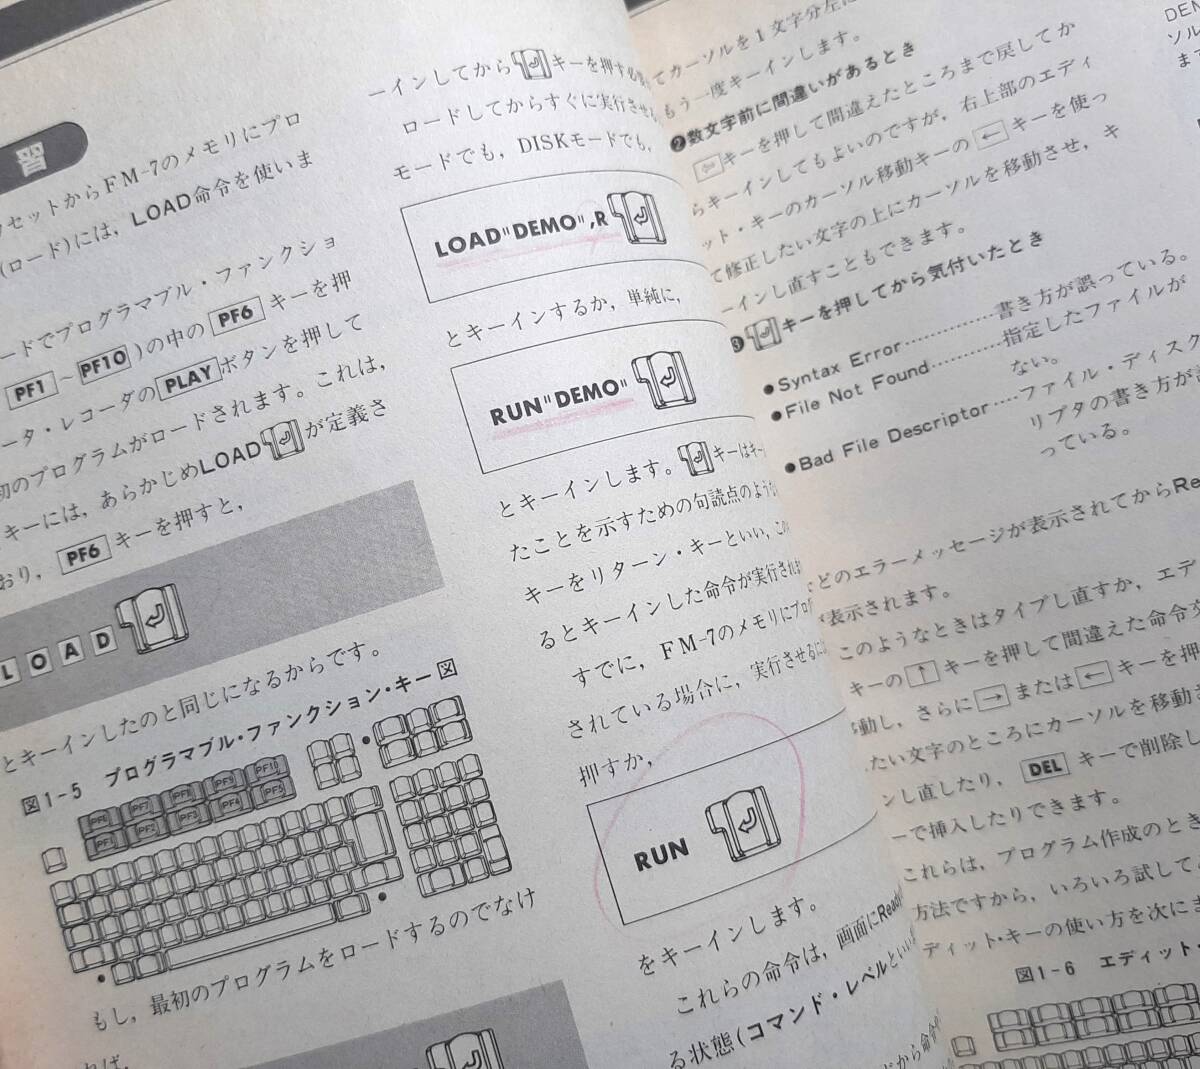 習
セットからFM-7のメモリにプロ
(ロード)には，LOAD命令を使いま
ードでプログラマブル・ファンクショ
PF1 ~ PF10 )の中の PF6 キーを押
ータ・レコーダの PLAY ボタンを押して
初のプログラムがロードされます。これは，
キーには，あらかじめLOAD が定義さ
おり， PF6 キーを押すと，
LOAD
とキーインしたのと同じになるからです。
図1-5 プログラマブル・ファンクション・キー図
PF6 PF7 PF8 PF9 PF10
PF1 PF2 PF3 PF4 PF5
もし，最初のプログラムをロードするのでなけ
れば，
ーインしてから キーを押す必
ロードしてからすぐに実行させ
モードでも，DISKモードでも，
LOAD"DEMO",R
とキーインするか，単純に，
RUN"DEMO"
とキーインします。 キーはキー
たことを示すための句読点のような
キーをリターン・キーといい，この
るとキーインした命令が実行され
すでに，FM-7のメモリにプロ
されている場合に，実行させるに
押すか，
RUN
をキーインします。
これらの命令は，画面にReady
る状態(コマンド・レベルといい
てカーソルを1文字分左に
もう一度キーインします。
❷数文字前に間違いがあるとき
キーを押して間違えたところまで戻してか
らキーインしてもよいのですが，右上部のエディ
ット・キーのカーソル移動キーの ← キーを使っ
て修正したい文字の上にカーソルを移動させ，キ
ーインし直すこともできます。
❸ キーを押してから気付いたとき
●Syntax Error…………書き方が誤っている。
●File Not Found…………指定したファイルが
ない。
●Bad File Descriptor…ファイル・ディスク
リプタの書き方が誤
っている。
などのエラーメッセージが表示されてからRe
が表示されます。
このようなときはタイプし直すか，エデ
キーの ↑ キーを押して間違えた命令文
移動し，さらに → または ← キーを押
たい文字のところにカーソルを移動
ンし直したり， DEL キーで削除し
ーで挿入したりできます。
これらは，プログラム作成のとき
方法ですから，いろいろ試して
ディット・キーの使い方を次に
図1-6 エディット・
DEN
ソル
ま